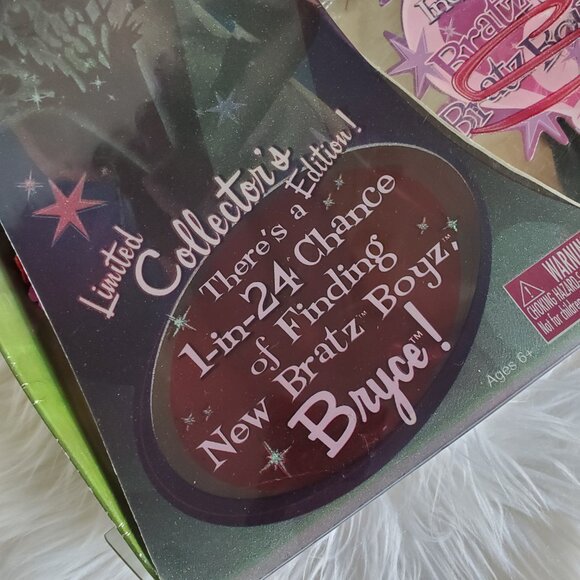 Bratz
Bratz
Limited
Collector's
Edition!
There's a
1-in-24 Chance
of Finding
New Bratz™ Boyz™,
Bryce™!
WARNING
CHOKING HAZARD
Not for children
Ages 6+